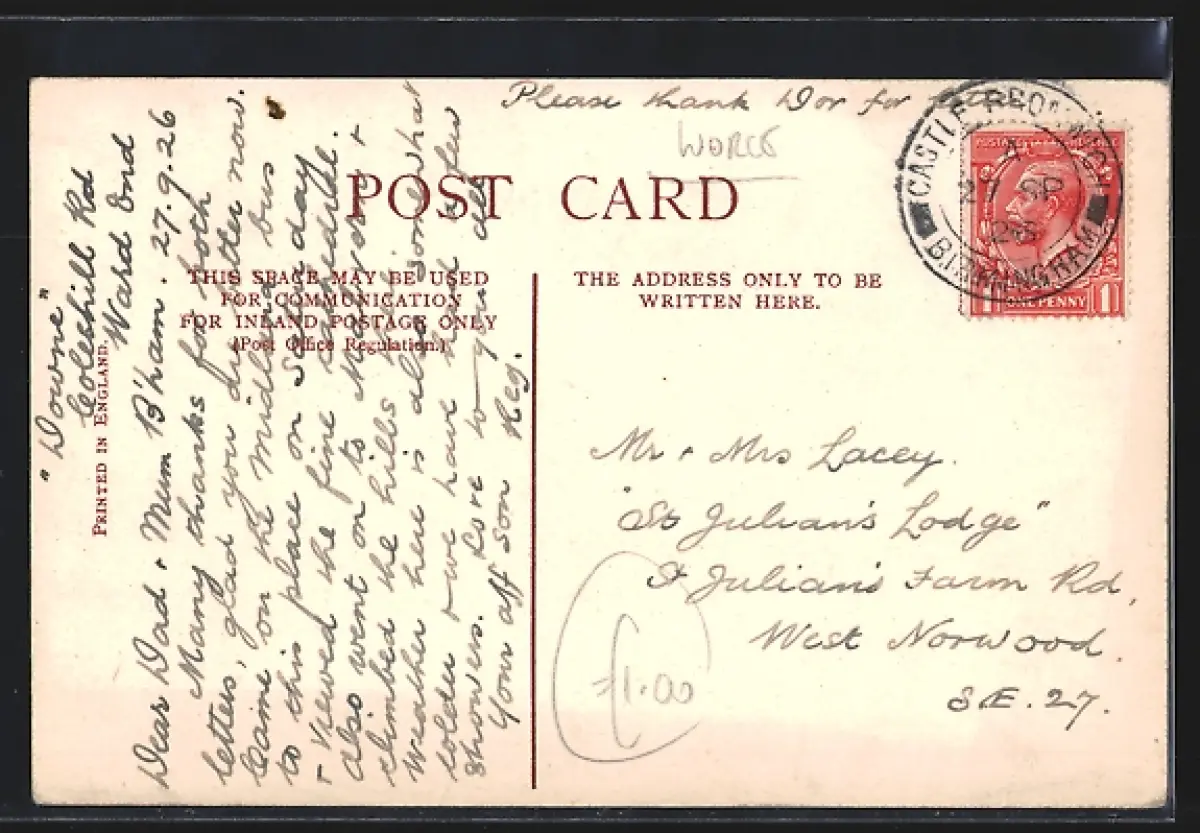 Please thank Dor for
WORCS
POST CARD
THIS SPACE MAY BE USED
FOR COMMUNICATION
FOR INLAND POSTAGE ONLY
(Post Office Regulation.)
THE ADDRESS ONLY TO BE
WRITTEN HERE.
PRINTED IN ENGLAND.
"Downe"
Coleshill Rd
Ward End
B'ham. 27.9.26
Dear Dad + Mum
Many thanks for both
letters, glad you are better now.
Came on the Midland bus
to this place on Saturday
+ viewed the fine Cathedral.
also went on to Malvern +
climbed the hills. The
weather here is also somewhat
colder + we have had a few
showers. Love to you all
Your aff Son Reg.
Mr + Mrs Lacey.
"St Julian's Lodge"
St Julian's Farm Rd,
West Norwood.
S.E. 27.
£1.00
CASTLE BROMWICH
27 SP
26
BIRMINGHAM
ONE PENNY
1 1